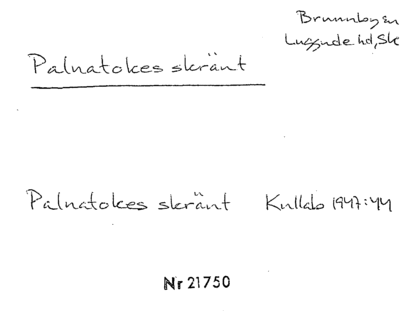 Brunnby sn
Luggude hd, Sk
Palnatokes skränt
Palnatokes skränt Kullabo 1947:44
Nr 21750